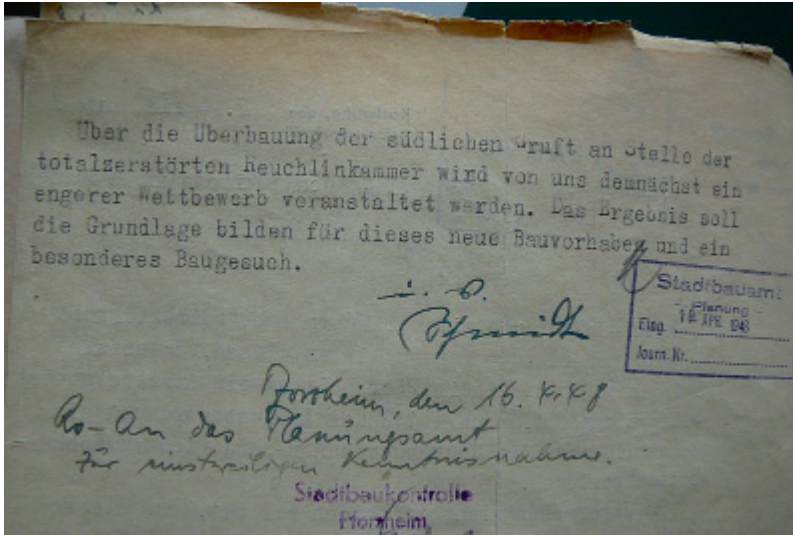 Über die Überbauung der südlichen Gruft an Stelle der
totalzerstörten Reuchlinkammer wird von uns demnächst ein
engerer Wettbewerb veranstaltet werden. Das Ergebnis soll
die Grundlage bilden für dieses neue Bauvorhaben und ein
besonderes Baugesuch.
Schmidt
Stadtbauamt
- Planung -
Eing. APR. 1948
Journ. Nr.
Pforzheim, den 16. 4. 48
An das Planungsamt
zur einstweiligen Kenntnisnahme.
Stadtbaukontrolle
Pforzheim